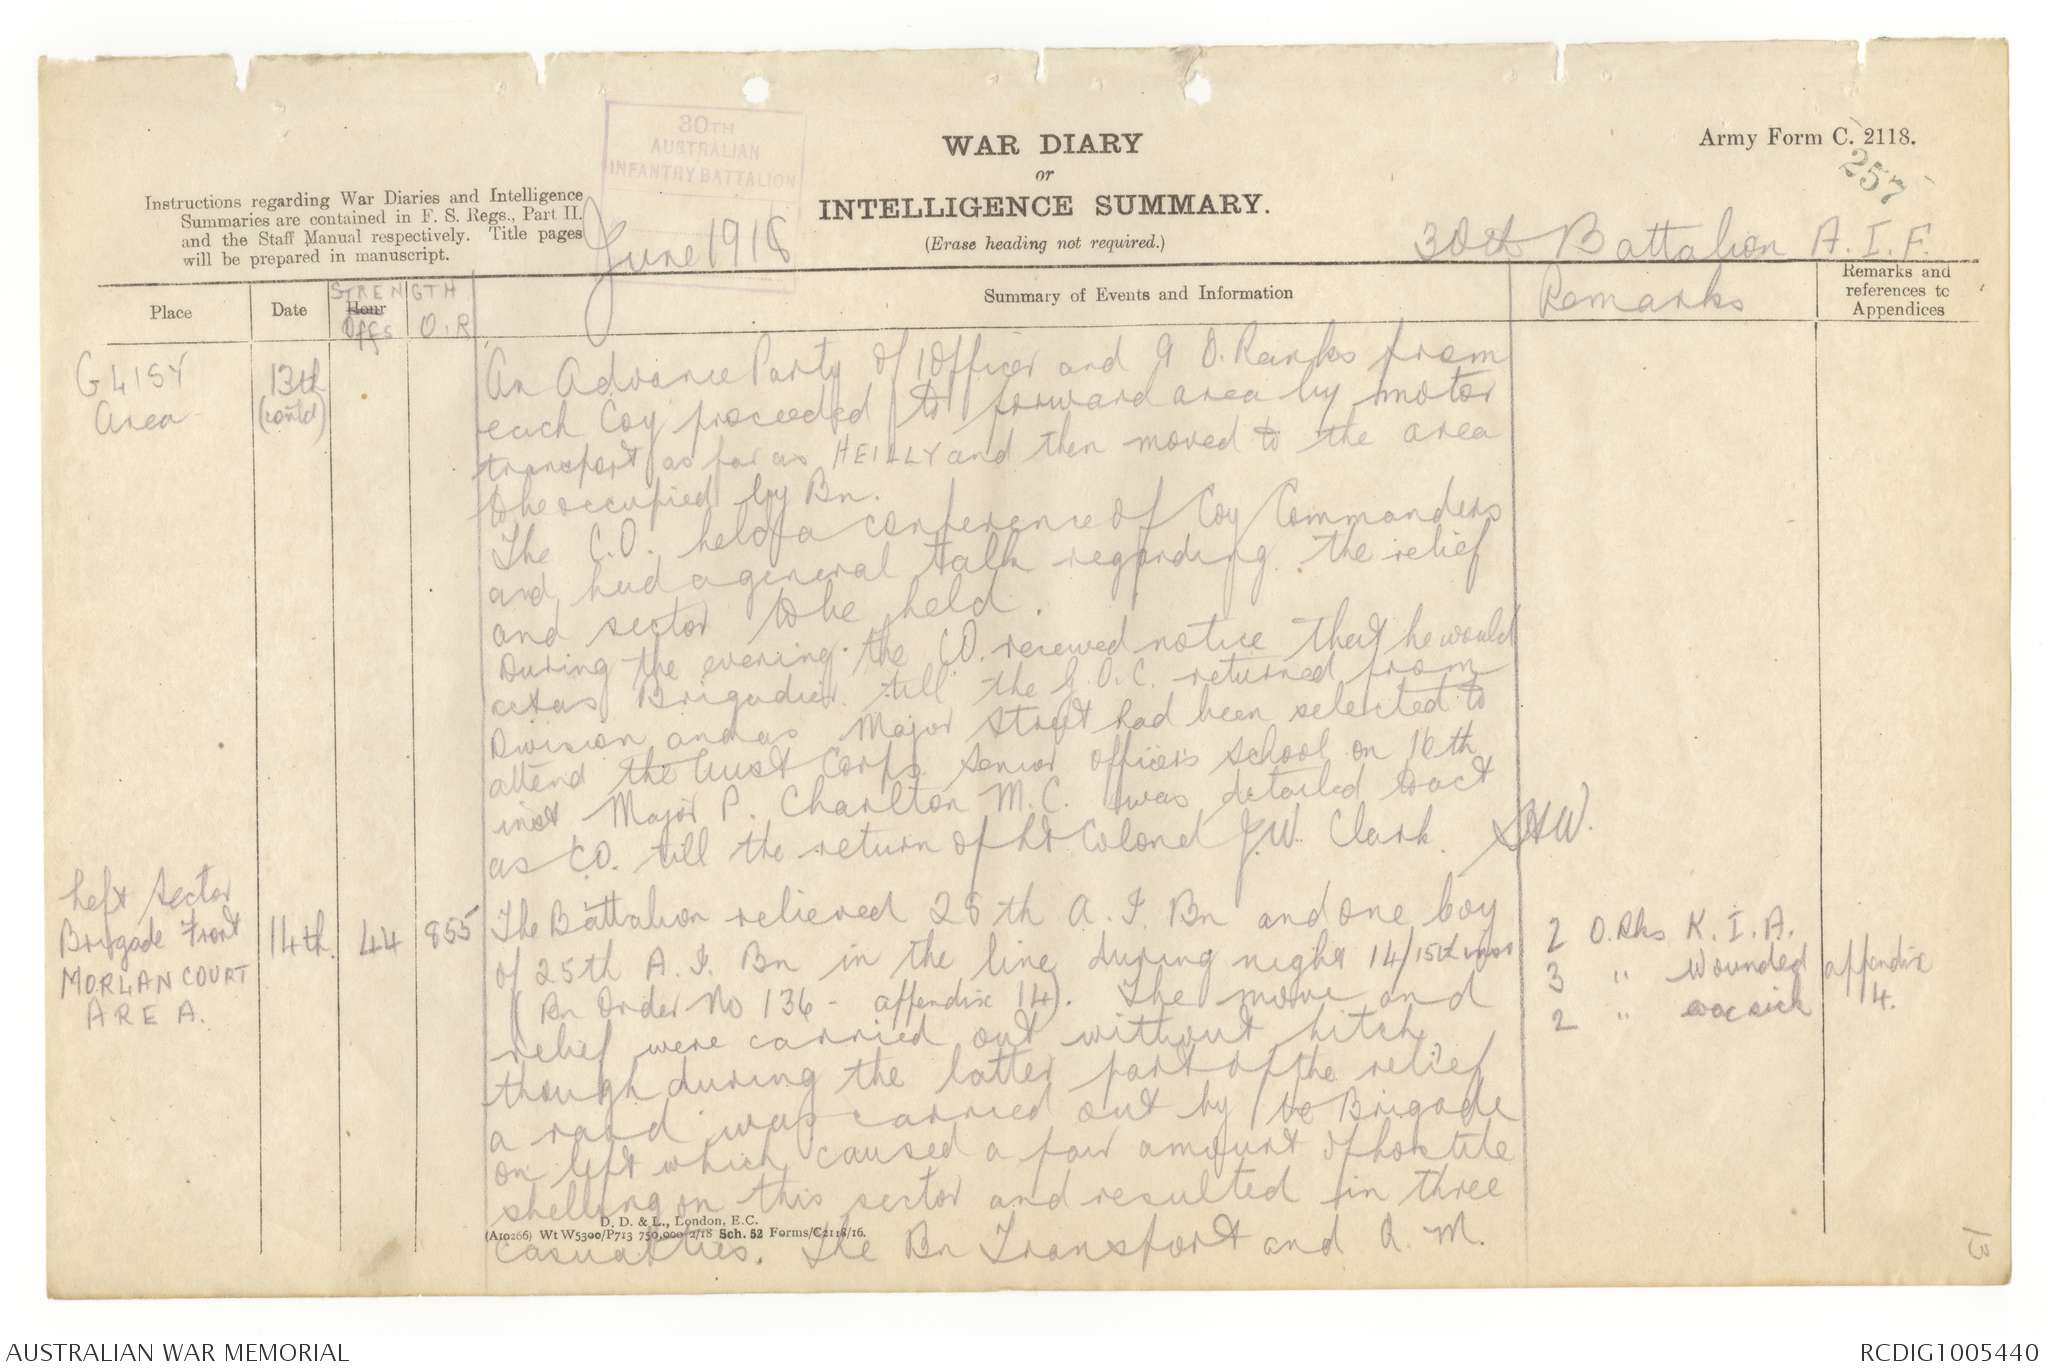 30TH
AUSTRALIAN
INFANTRY BATTALION
WAR DIARY
or
INTELLIGENCE SUMMARY.
(Erase heading not required.)
Army Form C. 2118.
257
Instructions regarding War Diaries and Intelligence
Summaries are contained in F. S. Regs., Part II.
and the Staff Manual respectively. Title pages
will be prepared in manuscript.
June 1918
30th Battalion A.I.F.
Place
Date
STRENGTH
Hour
Offs O.R
Summary of Events and Information
Remarks
Remarks and
references to
Appendices
GLISY
Area
13th
(contd)
An Advance Party of 1 Officer and 9 O.Ranks from
each Coy proceeded to forward area by motor
transport as far as HEILLY and then moved to the area
to be occupied by Bn.
The C.O. held a conference of Coy Commanders
and had a general talk regarding the relief
and sector to be held.
During the evening the CO. received notice that he would
act as Brigadier till the G.O.C. returned from
Division and as Major Street had been selected to
attend the Aust Corps Senior officers school on 16th
inst Major P. Charlton M.C. was detailed to act
as CO. till the return of Lt Colonel J.W. Clark.
Left Sector
Brigade Front
MORLANCOURT
AREA.
14th.
44
855
The Battalion relieved 28th A.I. Bn and one Coy
of 25th A.I. Bn in the line during night 14/15th inst
(Bn Order No 136 - appendix 14). The move and
relief were carried out without hitch,
though during the latter part of the relief
a raid was carried out by the Brigade
on left which caused a fair amount of hostile
shelling on this sector and resulted in three
casualties. The Bn Transport and Q.M.
2 O.Rks K.I.A.
3 " Wounded
2 " evac sick
appendix
14.
D. D. & L., London, E.C.
(A10266) Wt W5300/P713 750,000 2/18 Sch. 52 Forms/C2118/16.
13
AUSTRALIAN WAR MEMORIAL
RCDIG1005440